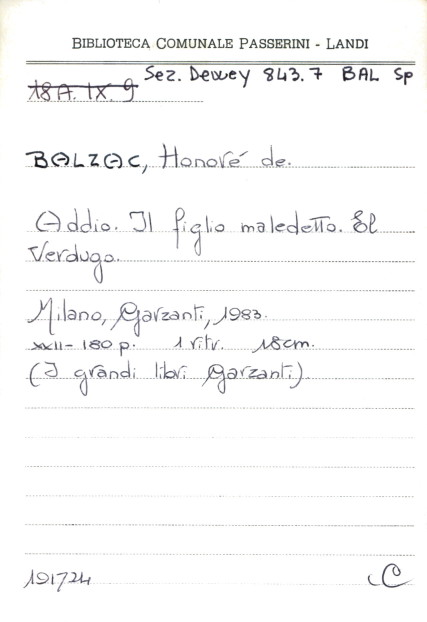 BIBLIOTECA COMUNALE PASSERINI - LANDI
Sez. Dewey 843.7 BAL Sp
18A. IX. 9
BALZAC, Honoré de.
Addio. Il figlio maledetto. El
Verdugo.
Milano, Garzanti, 1983.
XXII-180 p. 1 ritr. 18cm.
(I grandi libri Garzanti).
191724
C